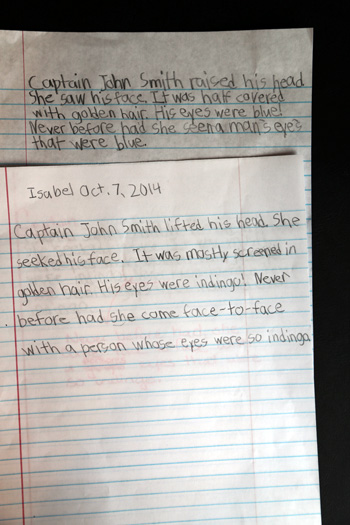 Captain John Smith raised his head
She saw his face. It was half covered
with golden hair. His eyes were blue!
Never before had she seen a man's eyes
that were blue.
Isabel Oct. 7, 2014
Captain John Smith lifted his head. She
seeked his face. It was mostly screened in
golden hair. His eyes were indingo! Never
before had she come face-to-face
with a person whose eyes were so indingo